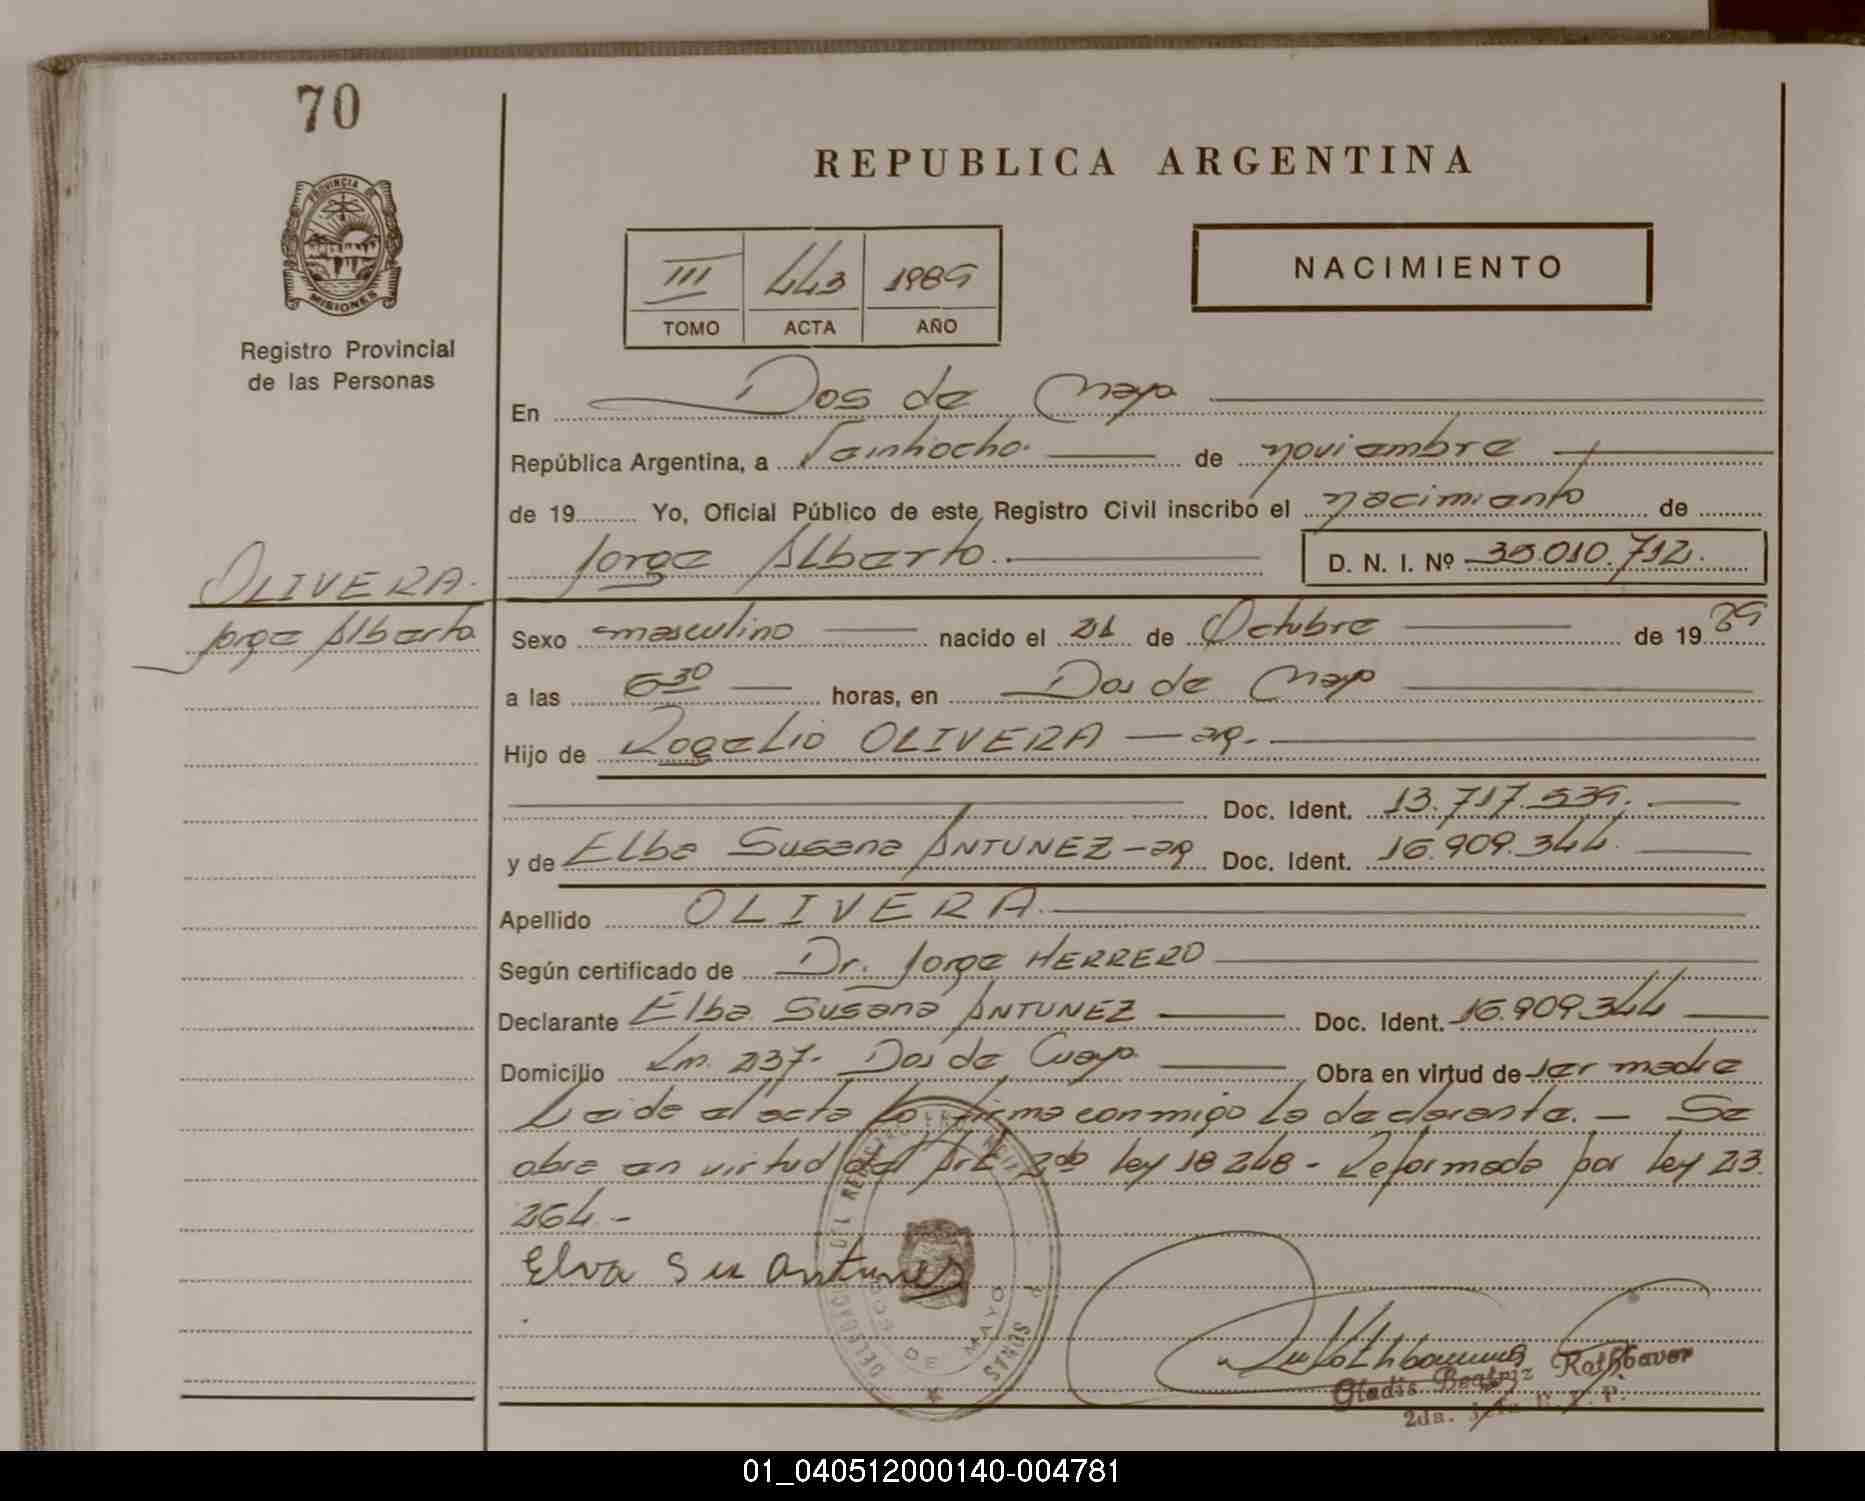 70
REPUBLICA ARGENTINA
PROVINCIA DE
MISIONES
Registro Provincial
de las Personas
III 443 1989
TOMO ACTA AÑO
NACIMIENTO
En Dos de Mayo
República Argentina, a Veinhocho. de noviembre
de 19 Yo, Oficial Público de este Registro Civil inscribo el nacimiento de
Jorge Alberto. D. N. I. Nº 35.010.712.
OLIVERA.
Jorge Alberto
Sexo masculino nacido el 21 de Octubre de 19 89
a las 6 30 horas, en Dos de Mayo
Hijo de Rogelio OLIVERA — arg.
Doc. Ident. 13.717.539.
y de Elba Susana ANTUNEZ - arg Doc. Ident. 16.909.344.
Apellido OLIVERA.
Según certificado de Dr. Jorge HERRERO
Declarante Elba Susana ANTUNEZ Doc. Ident. 16.909.344
Domicilio Km. 237- Dos de Mayo Obra en virtud de ser madre
Leide el acta la firma conmigo la declarante. — Se
obra en virtud del Art. 2do ley 18248 - Reformada por ley 23.
264 -
Elva Su antunes
DELEGACION DEL REGISTRO
DOS DE MAYO
Gladis Beatriz Rothbauer
2da. Jefe R. P. P.
01_040512000140-004781